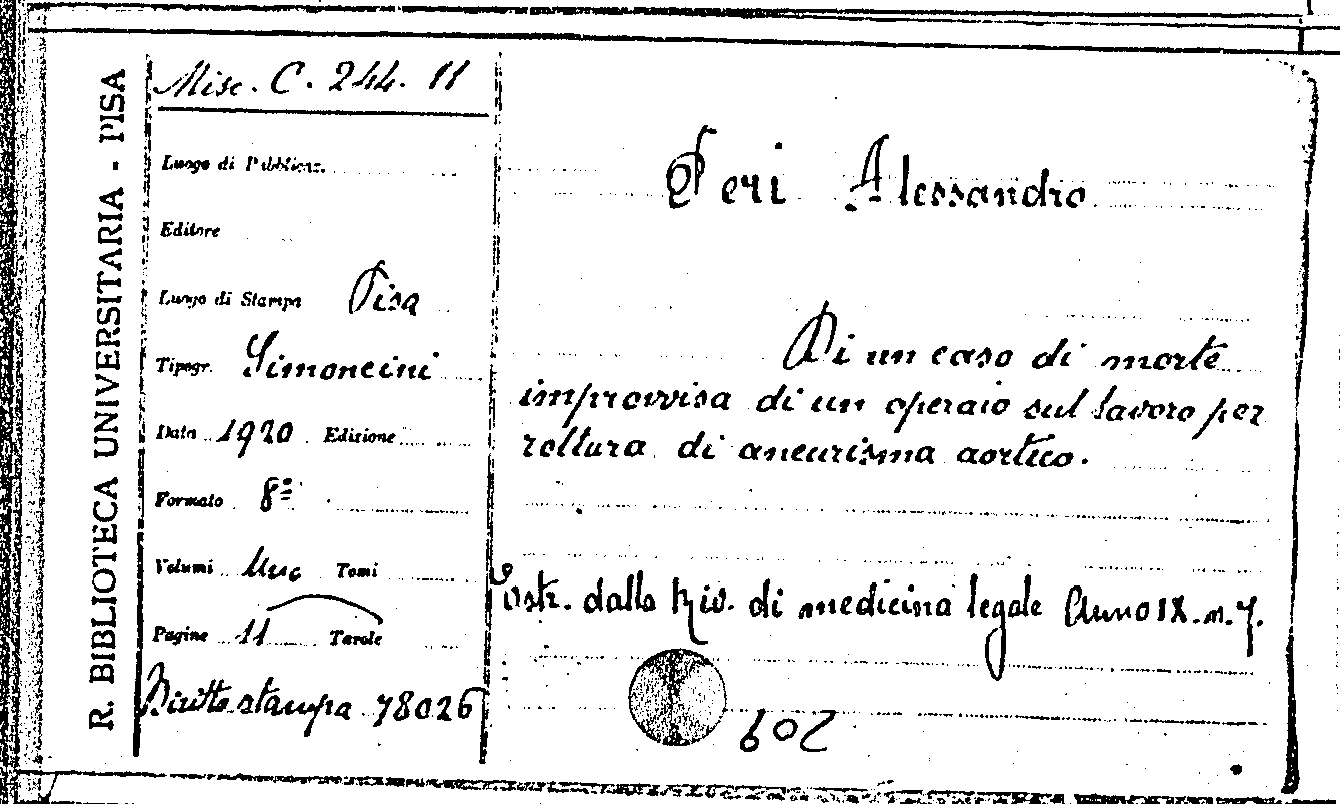 R. BIBLIOTECA UNIVERSITARIA - PISA
Misc. C. 244. 11
Luogo di Pubblicaz.
Editore
Luogo di Stampa Pisa
Tipogr. Simoncini
Data 1920 Edizione
Formato 8º
Volumi Uno Tomi
Pagine 11 Tavole
Diritto stampa 78026
Peri Alessandro
Di un caso di morte
improvvisa di un operaio sul lavoro per
rottura di aneurisma aortico.
estr. dalla Riv. di medicina legale Anno IX. n. 7.